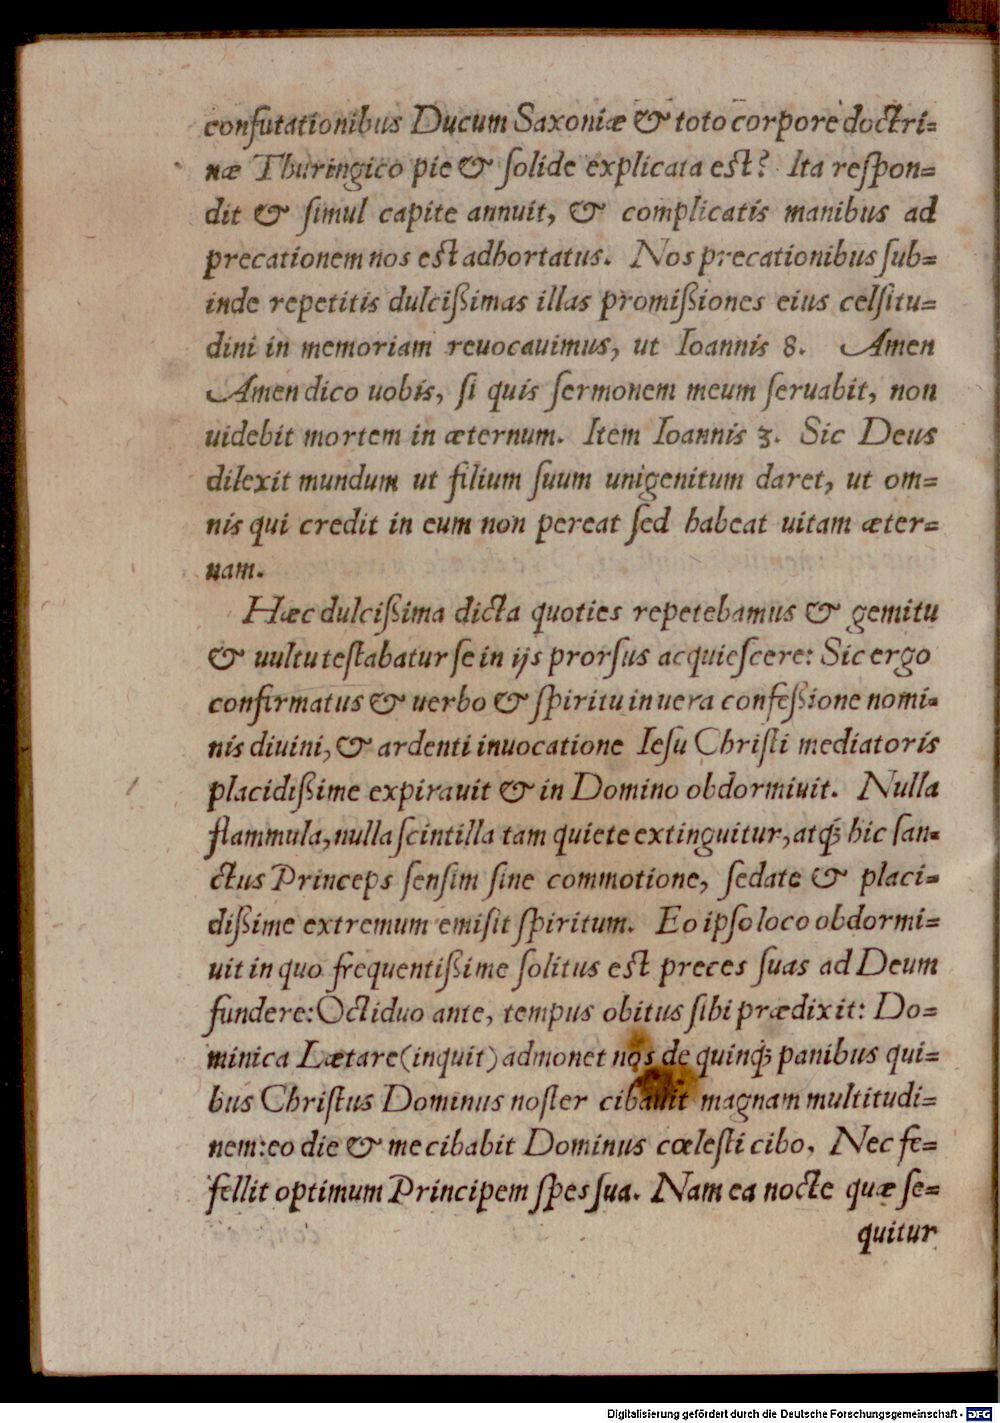 confutationibus Ducum Saxoniæ & toto corpore doctri=
næ Thuringico pie & ſolide explicata eſt? Ita reſpon=
dit & ſimul capite annuit, & complicatis manibus ad
precationem nos eſt adhortatus. Nos precationibus ſub=
inde repetitis dulcißimas illas promißiones eius celſitu=
dini in memoriam reuocauimus, ut Ioannis 8. Amen
Amen dico uobis, ſi quis ſermonem meum ſeruabit, non
uidebit mortem in æternum. Item Ioannis 3. Sic Deus
dilexit mundum ut filium ſuum unigenitum daret, ut om=
nis qui credit in eum non pereat ſed habeat uitam æter=
nam.
Hæc dulcißima dicta quoties repetebamus & gemitu
& uultu teſtabatur ſe in ijs prorſus acquieſcere: Sic ergo
confirmatus & uerbo & ſpiritu in uera confeßione nomi=
nis diuini, & ardenti inuocatione Ieſu Chriſti mediatoris
placidißime expirauit & in Domino obdormiuit. Nulla
flammula, nulla ſcintilla tam quiete extinguitur, atq́; hic ſan=
ctus Princeps ſenſim ſine commotione, ſedate & placi=
dißime extremum emiſit ſpiritum. Eo ipſo loco obdormi=
uit in quo frequentißime ſolitus eſt preces ſuas ad Deum
fundere: Octiduo ante, tempus obitus ſibi prædixit: Do=
minica Lætare (inquit) admonet nos de quinq́; panibus qui=
bus Chriſtus Dominus noſter cibauit magnam multitudi=
nem: eo die & me cibabit Dominus cœleſti cibo, Nec fe=
fellit optimum Principem ſpes ſua. Nam ea nocte quæ ſe=
quitur
Digitalisierung gefördert durch die Deutsche Forschungsgemeinschaft - DFG